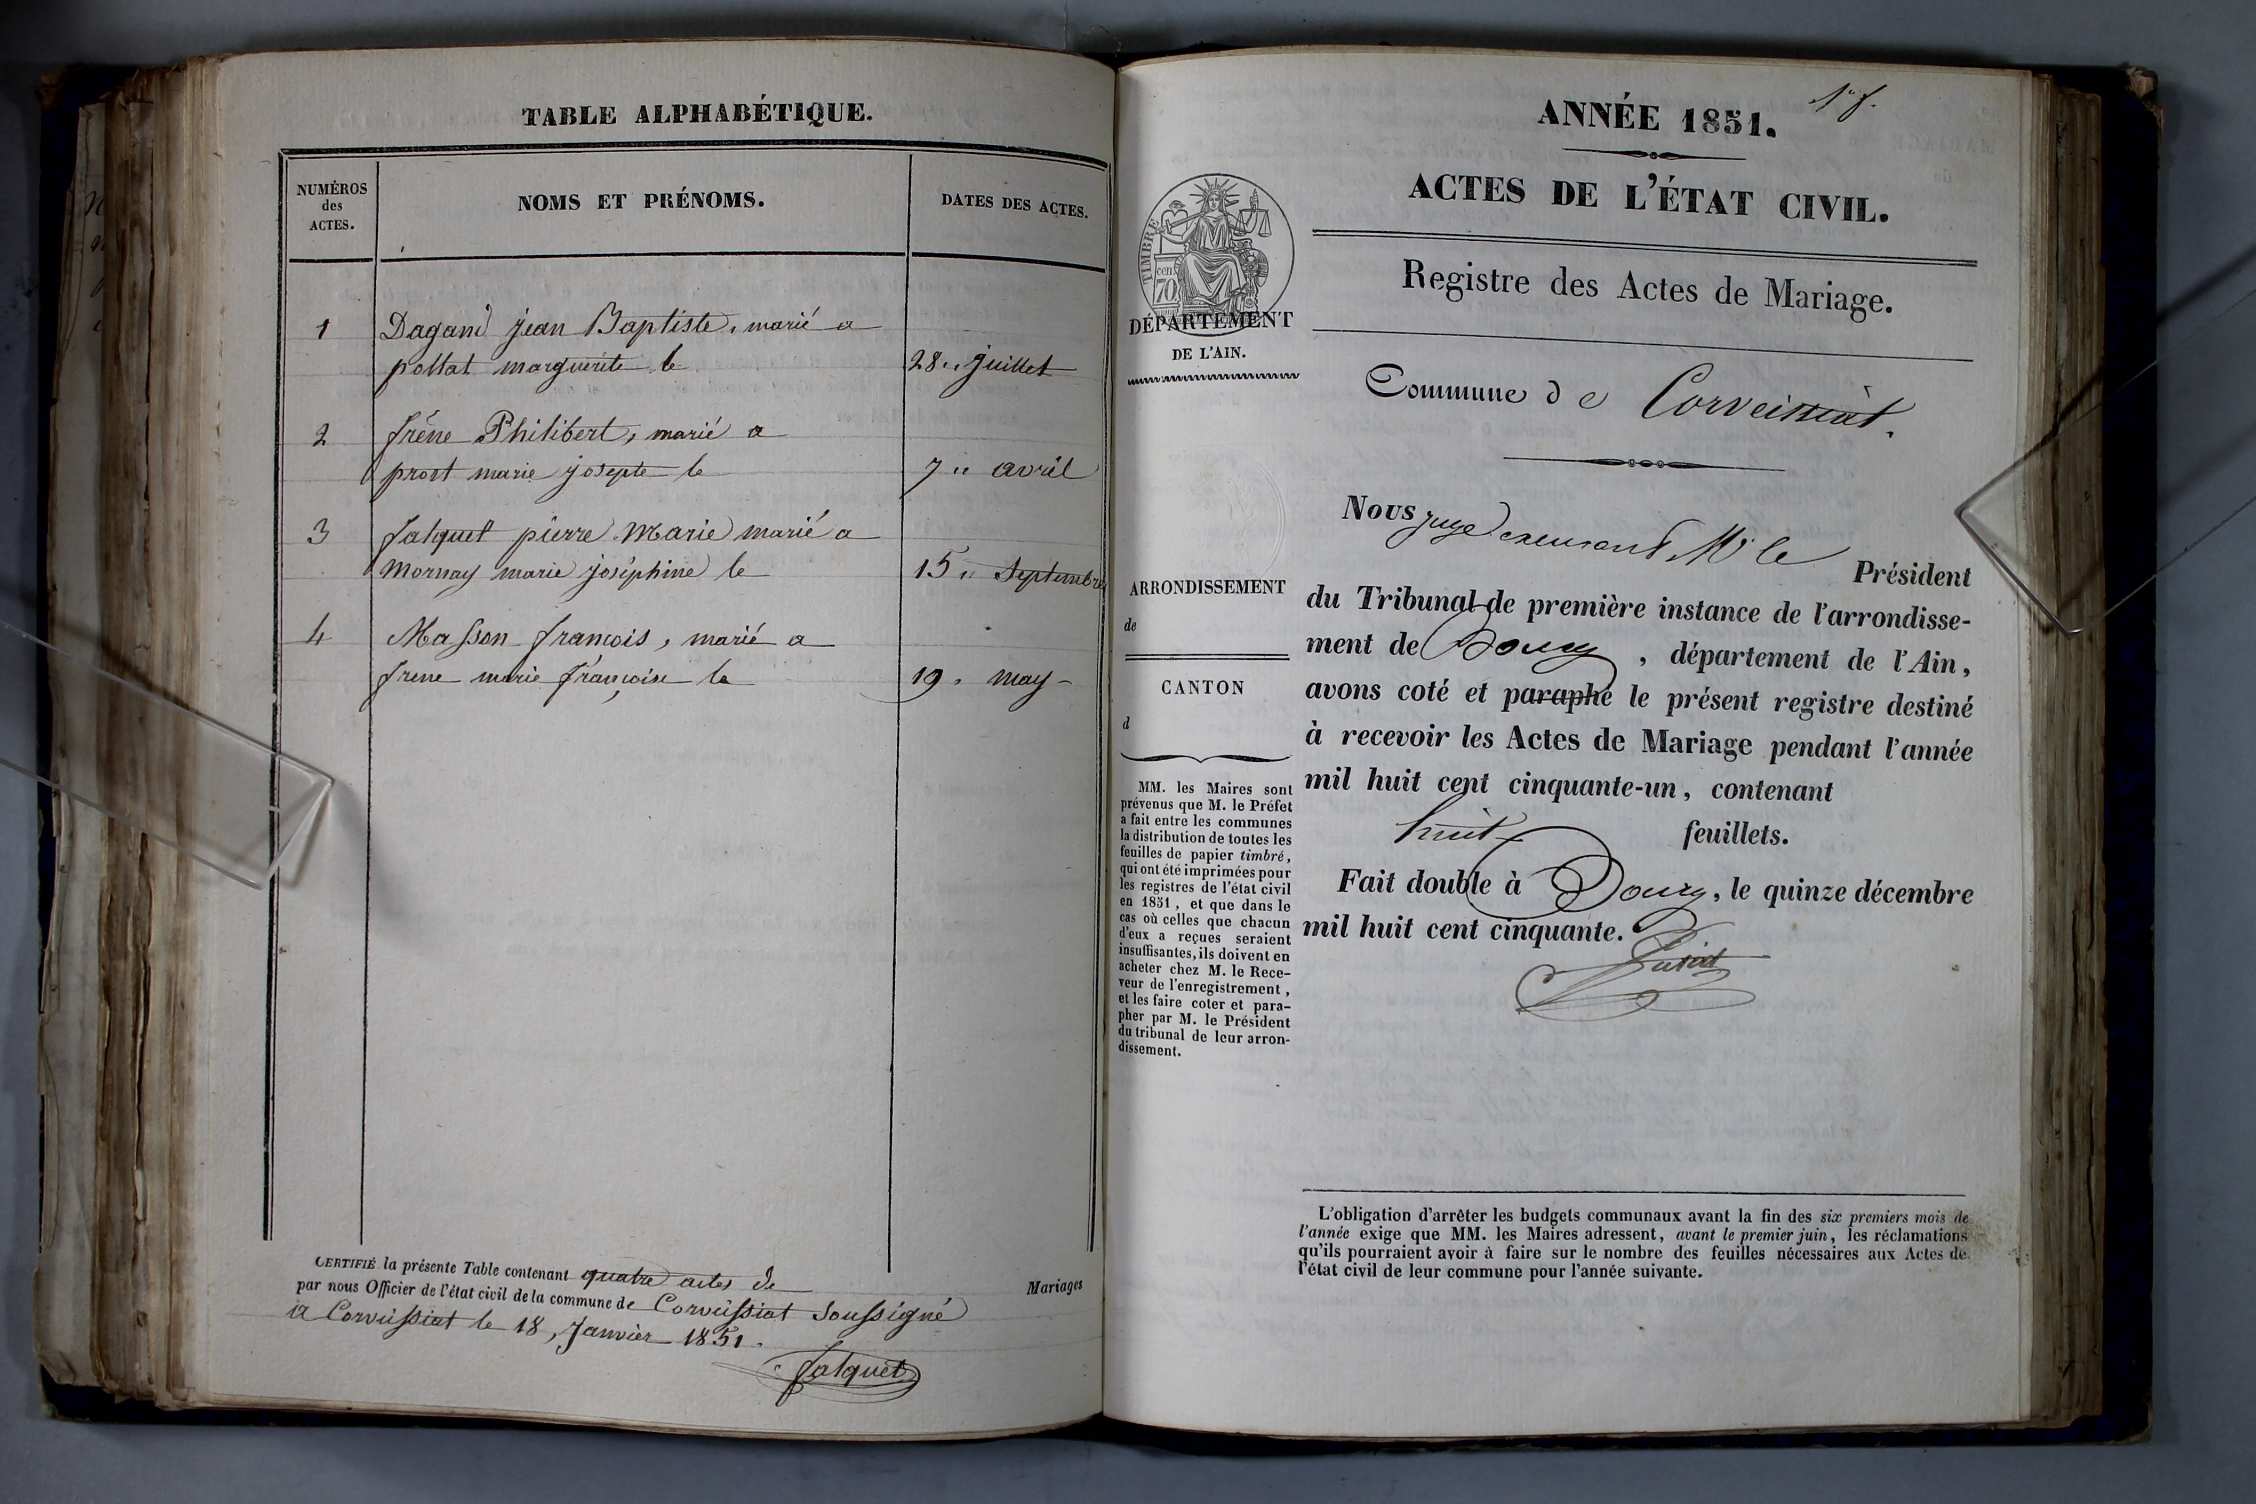 TABLE ALPHABÉTIQUE.
NUMÉROS
des
ACTES.
NOMS ET PRÉNOMS.
DATES DES ACTES.
1 Dagand jean Baptiste, marié a
pottat marguerite le 28 juillet
2 frêne Philibert, marié a
prost marie josepte le 7 avril
3 falquet pierre Marie marié a
Mornay marie joséphine le 15 Septembre
4 Masson francois, marié a
frene marie françoise le 19 may
CERTIFIÉ la présente Table contenant quatre actes de Mariages
par nous Officier de l'état civil de la commune de Corveissiat Soussigné
a Corveissiat le 18 Janvier 1851.
falquet
1er f.
ANNÉE 1851.
ACTES DE L'ÉTAT CIVIL.
Registre des Actes de Mariage.
TIMBRE
cen.
70
DÉPARTEMENT
DE L'AIN.
Commune de Corveissiat.
ARRONDISSEMENT
de
CANTON
d
MM. les Maires sont
prévenus que M. le Préfet
a fait entre les communes
la distribution de toutes les
feuilles de papier timbré,
qui ont été imprimées pour
les registres de l'état civil
en 1851, et que dans le
cas où celles que chacun
d'eux a reçues seraient
insuffisantes, ils doivent en
acheter chez M. le Rece-
veur de l'enregistrement,
et les faire coter et para-
pher par M. le Président
du tribunal de leur arron-
dissement.
Nous juge Mr le Président
du Tribunal de première instance de l'arrondisse-
ment de Bourg, département de l'Ain,
avons coté et paraphé le présent registre destiné
à recevoir les Actes de Mariage pendant l'année
mil huit cent cinquante-un, contenant
huit feuillets.
Fait double à Bourg, le quinze décembre
mil huit cent cinquante.
L'obligation d'arrêter les budgets communaux avant la fin des six premiers mois de
l'année exige que MM. les Maires adressent, avant le premier juin, les réclamations
qu'ils pourraient avoir à faire sur le nombre des feuilles nécessaires aux Actes de
l'état civil de leur commune pour l'année suivante.